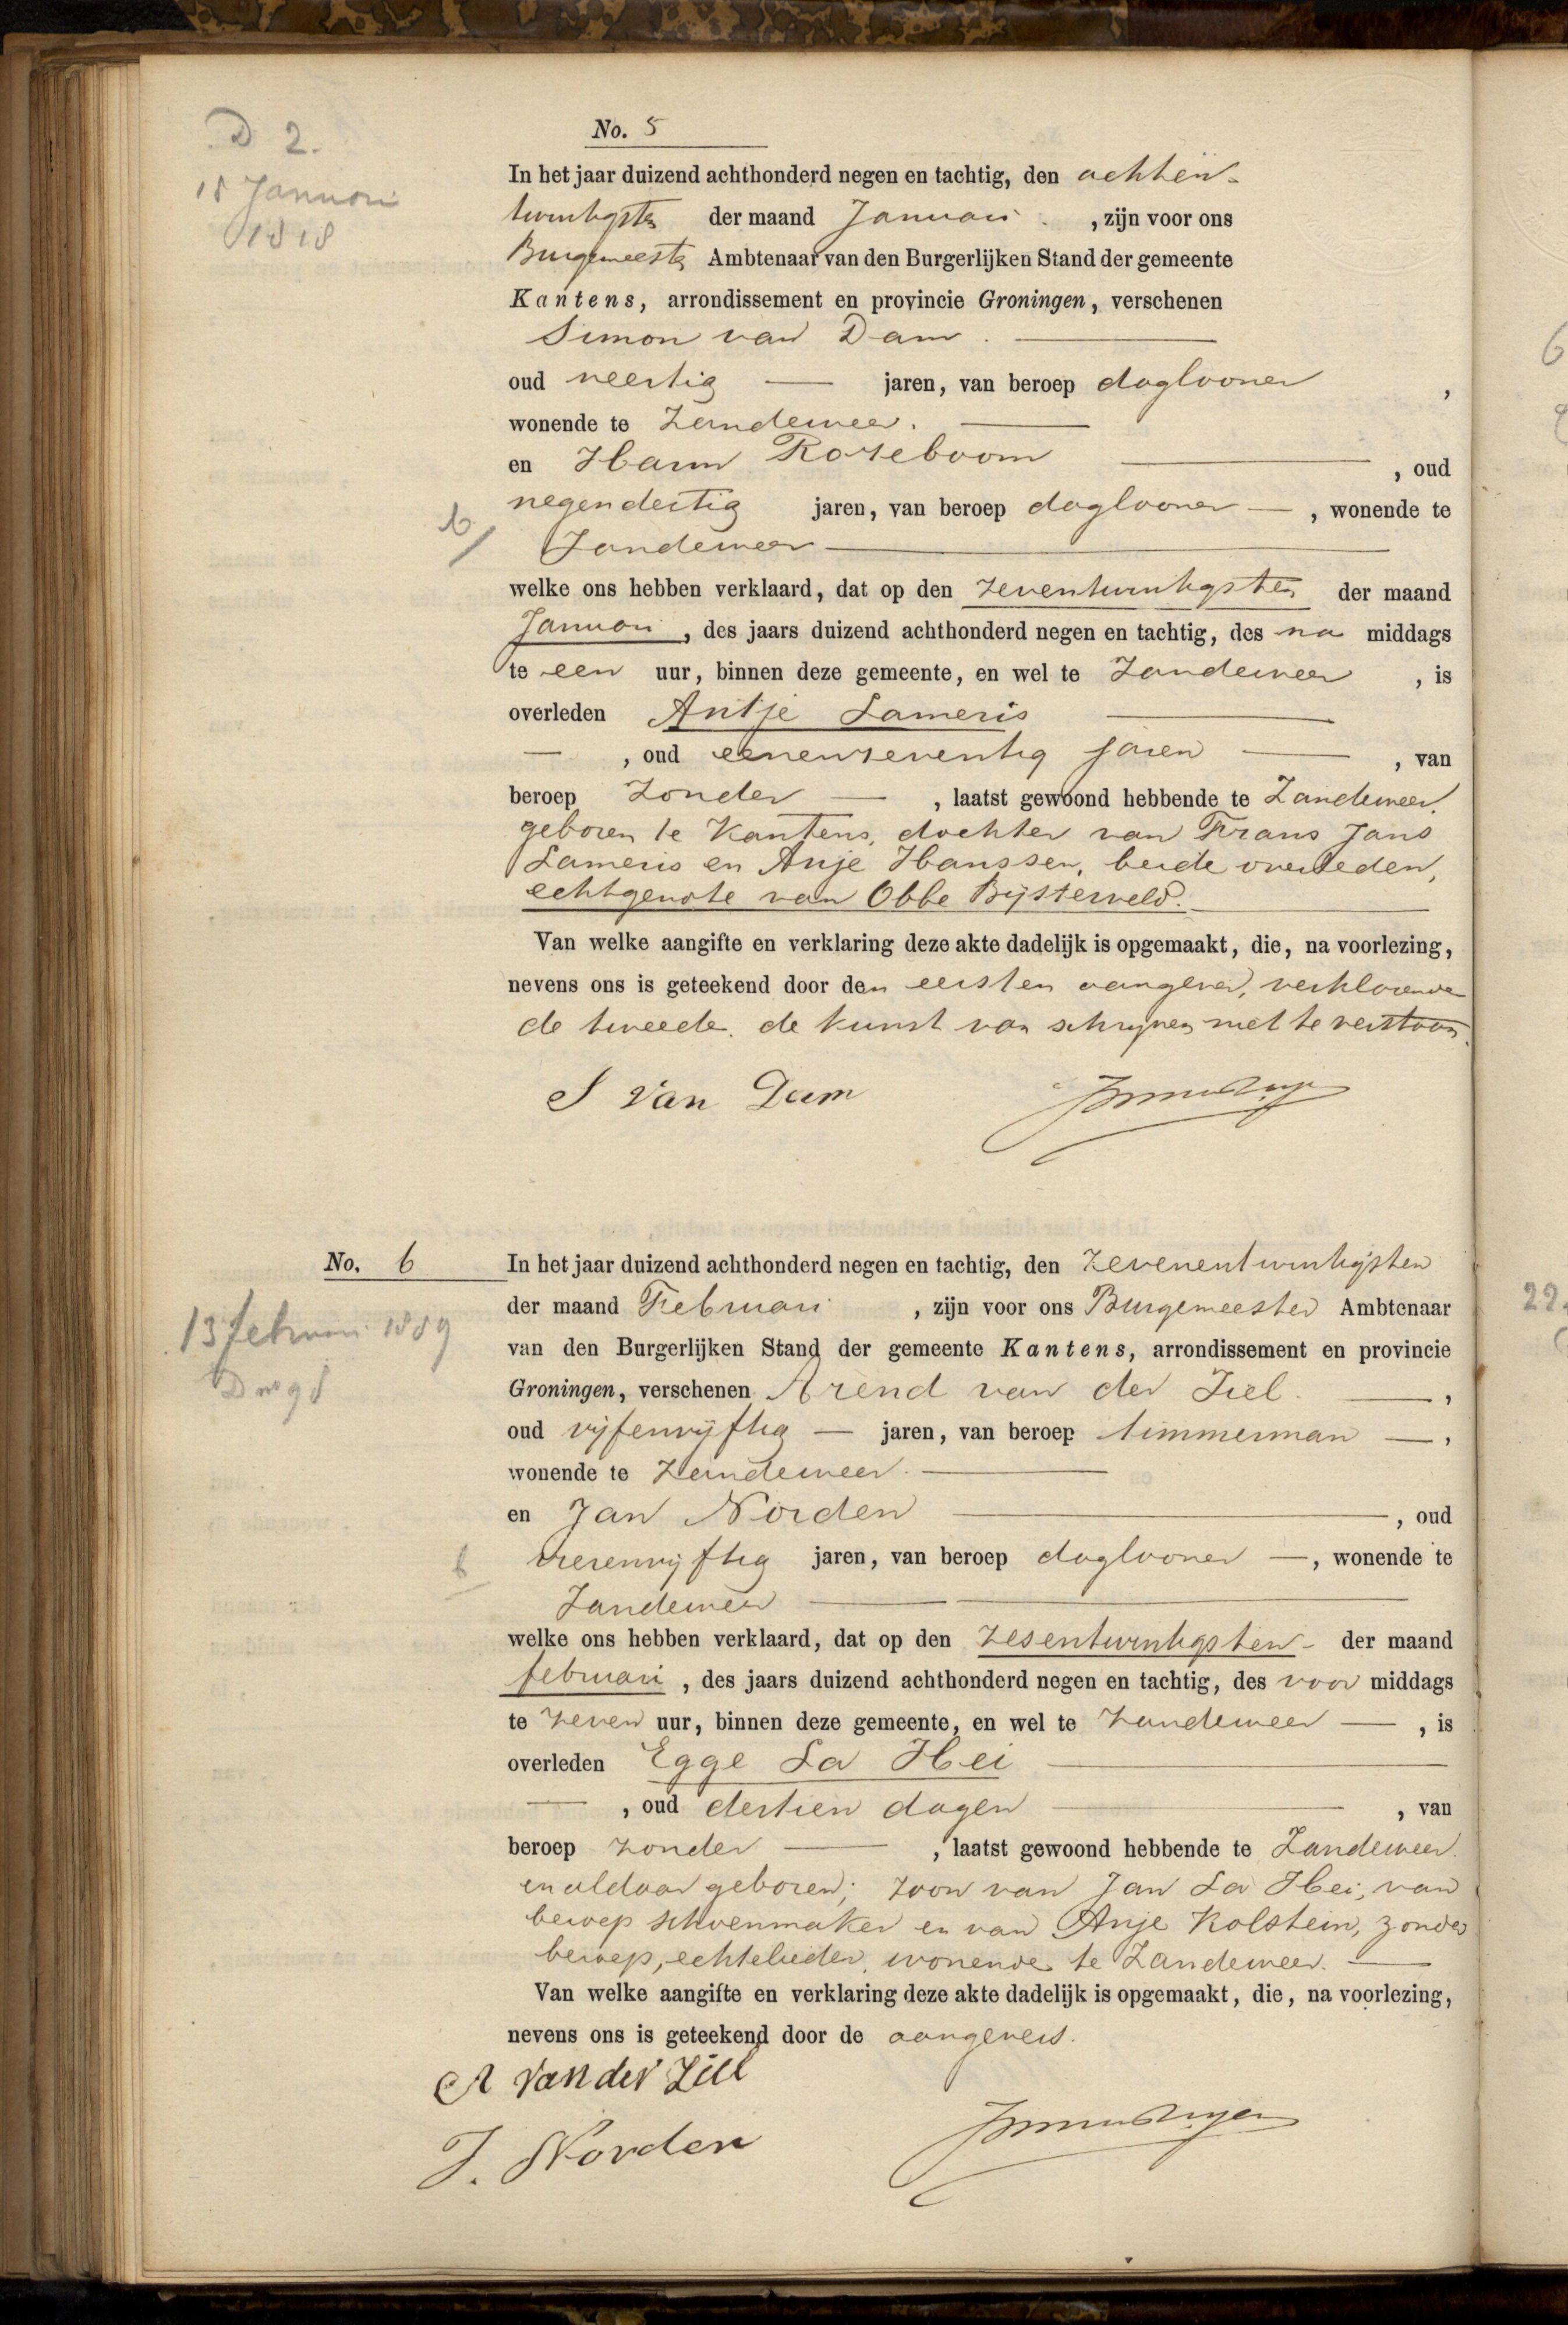 D 2.
18 Januari
1818
No. 5
In het jaar duizend achthonderd negen en tachtig, den achten-
twintigsten der maand Januari, zijn voor ons
Burgemeester Ambtenaar van den Burgerlijken Stand der gemeente
Kantens, arrondissement en provincie Groningen, verschenen
Simon van Dam.
oud veertig jaren, van beroep daglooner,
wonende te Zandeweer.
en Harm Rozeboom, oud
negendertig jaren, van beroep daglooner, wonende te
Zandeweer
welke ons hebben verklaard, dat op den zeventwintigsten der maand
Januari, des jaars duizend achthonderd negen en tachtig, des na middags
te een uur, binnen deze gemeente, en wel te Zandeweer, is
overleden Antje Lameris
, oud eenenzeventig jaren, van
beroep zonder, laatst gewoond hebbende te Zandeweer.
geboren te Kantens, dochter van Frans Jans
Lameris en Anje Hanssen, beide overleden,
echtgenote van Obbe Bijsterveld.
Van welke aangifte en verklaring deze akte dadelijk is opgemaakt, die, na voorlezing,
nevens ons is geteekend door den eersten aangever, verklarende
de tweede de kunst van schrijven niet te verstaan.
S van Dam
No. 6
13 februari 1889
In het jaar duizend achthonderd negen en tachtig, den zevenentwintigsten
der maand Februari, zijn voor ons Burgemeester Ambtenaar
van den Burgerlijken Stand der gemeente Kantens, arrondissement en provincie
Groningen, verschenen Arend van der Ziel.,
oud vijfenvijftig jaren, van beroep timmerman,
wonende te Zandeweer.
en Jan Norden, oud
vierenvijftig jaren, van beroep daglooner, wonende te
Zandeweer
welke ons hebben verklaard, dat op den zesentwintigsten der maand
februari, des jaars duizend achthonderd negen en tachtig, des voor middags
te zeven uur, binnen deze gemeente, en wel te Zandeweer, is
overleden Egge La Hei
, oud dertien dagen, van
beroep zonder, laatst gewoond hebbende te Zandeweer.
en aldaar geboren; zoon van Jan La Hei, van
beroep schoenmaker en van Anje Kolstein, zonder
beroep, echtelieden, wonende te Zandeweer.
Van welke aangifte en verklaring deze akte dadelijk is opgemaakt, die, na voorlezing,
nevens ons is geteekend door de aangevers.
A van der Ziel
J. Norden